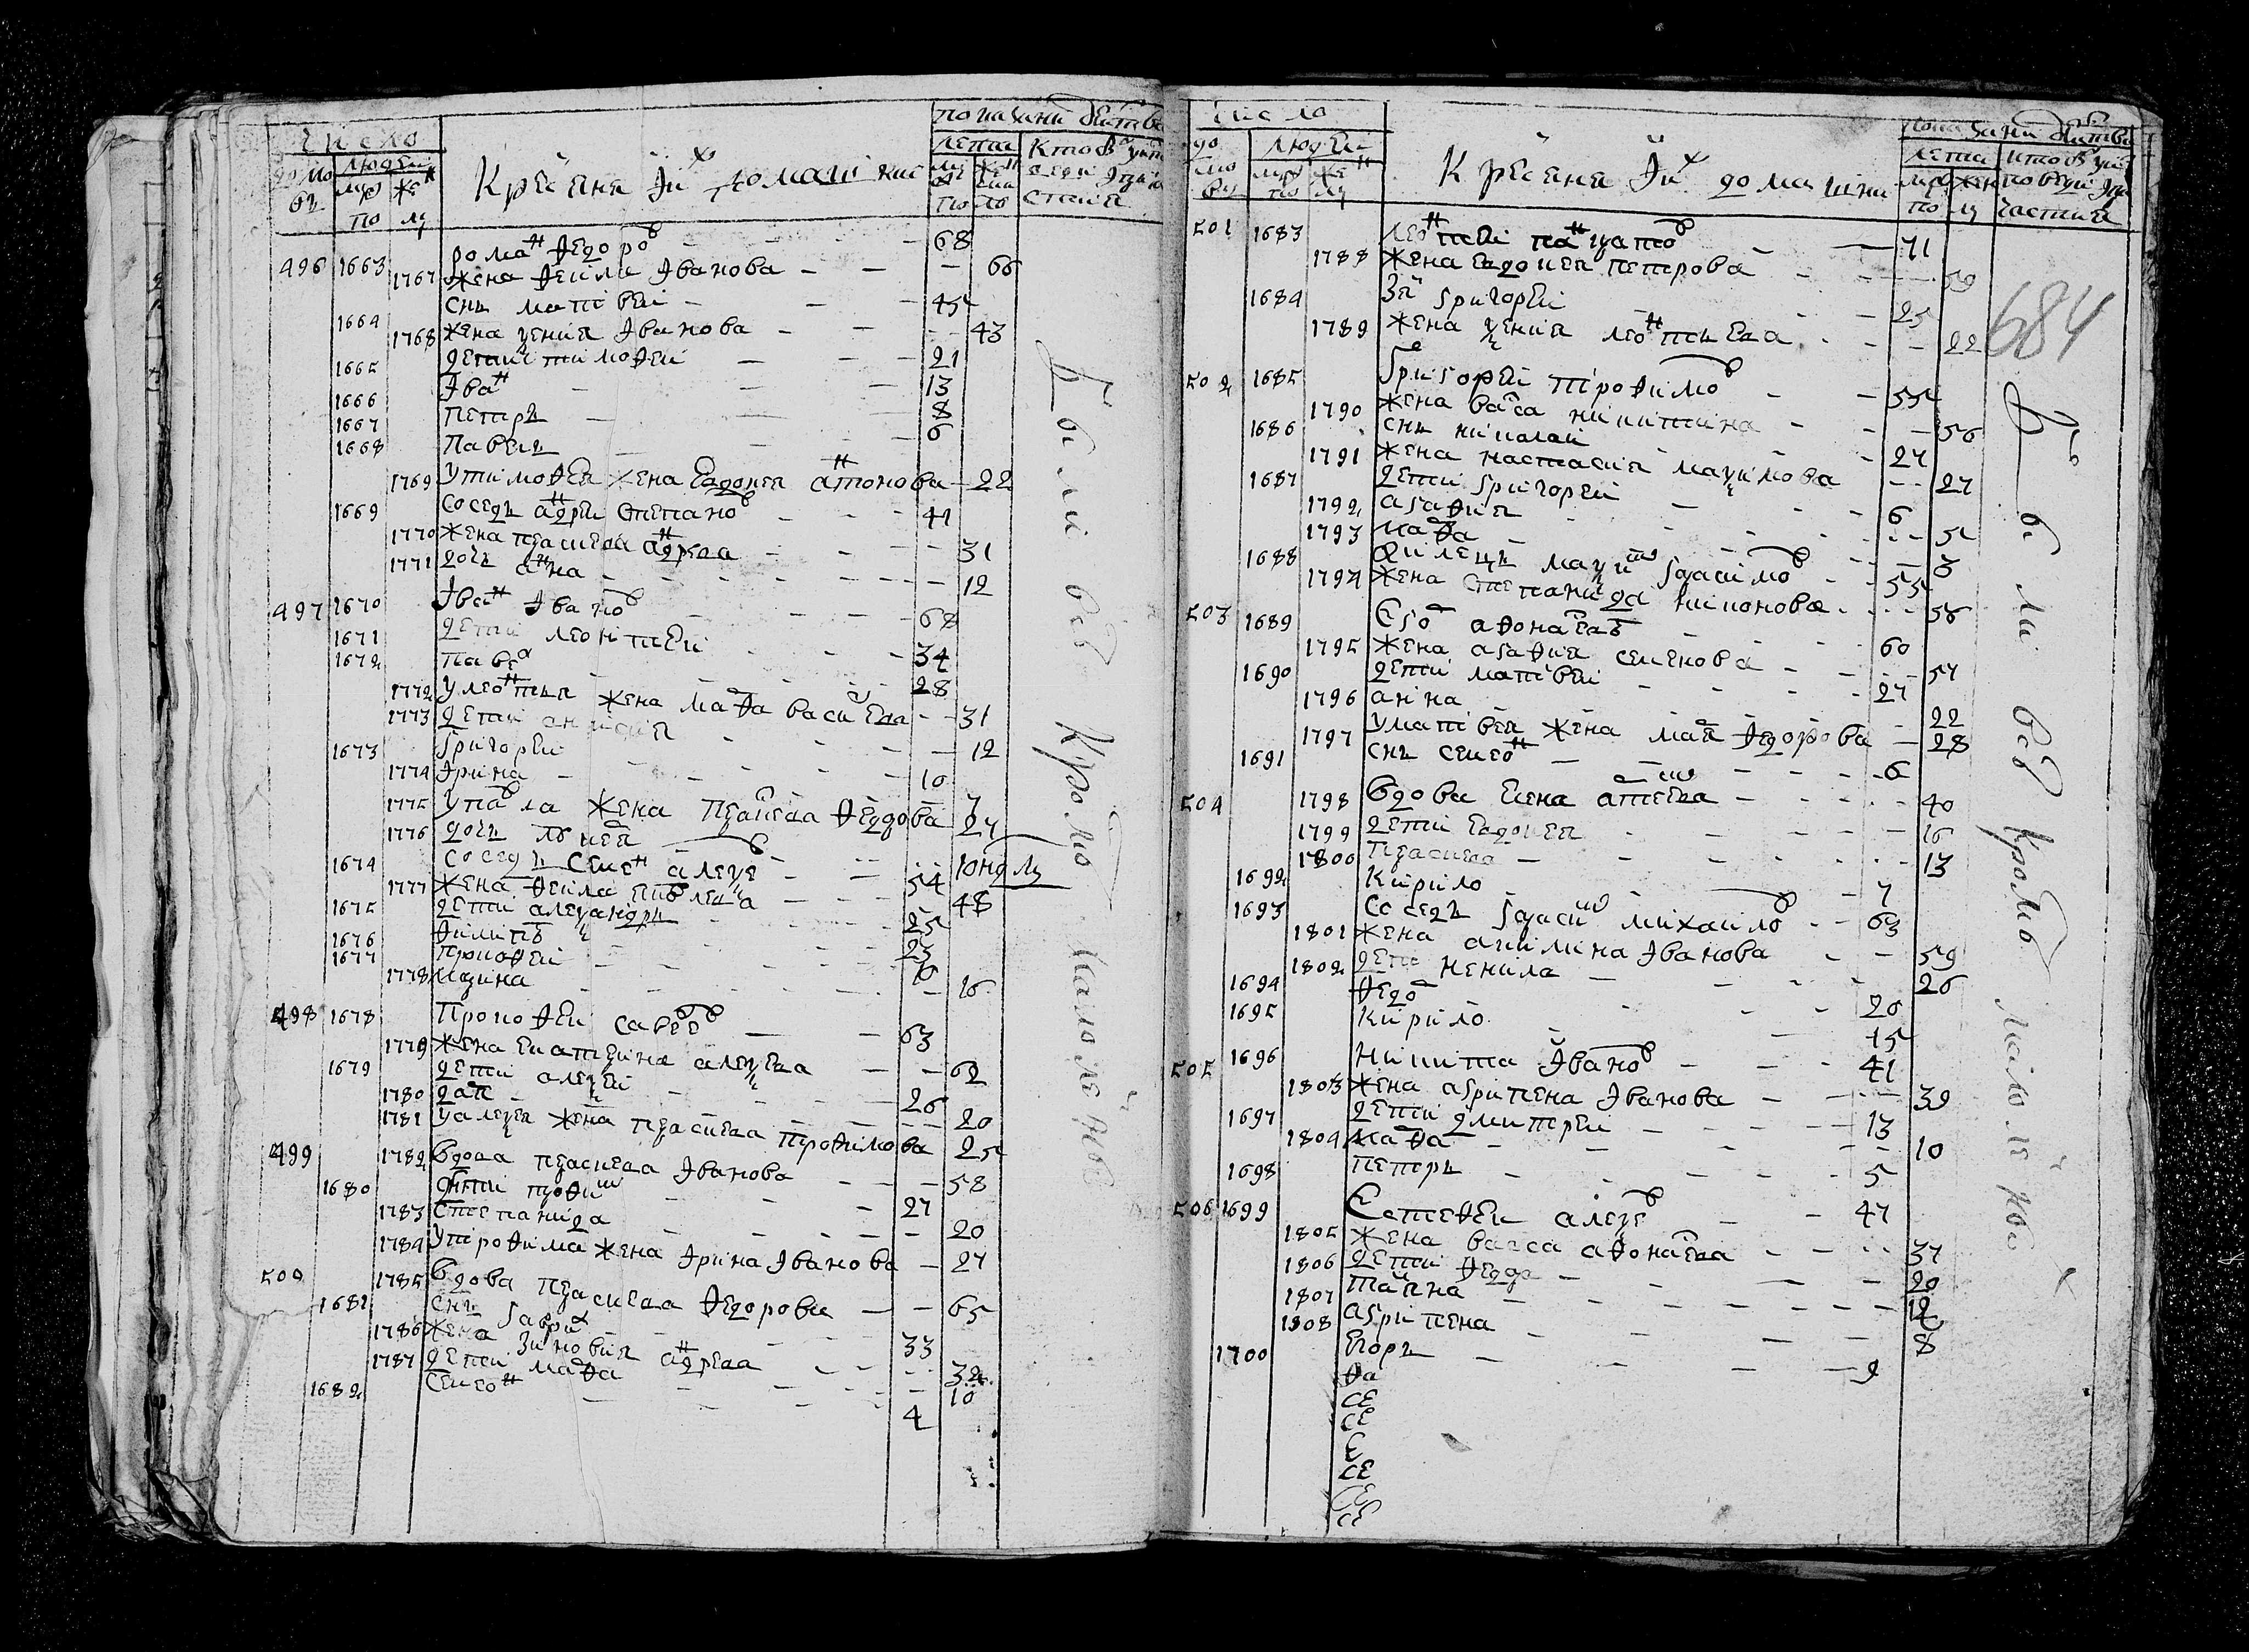 число
домовъ
людей
муж
жен
по
лу
Крестьяне и их домашние
показание действа
лета
муж
жен
полу
496 1663 роман федоров 68
1767 жена фекла иванова 66
1664 снъ матвей 45
1768 жена ксения иванова 43
1665 дети тимофей 21
1666 иван 13
1667 петръ 8
1668 павелъ 6
1769 у тимофея жена евдокея антонова 22
1669 соседъ андрей степанов 41
1770 жена прасковя андреева 31
1771 дочь анна 12
497 1670 иван иванов 68
1671 дети леонтией 34
1672 павел 28
1772 у леонтия жена марфа васильева 31
1773 дети анисия 12
1673 григорей 10
1774 ирина 7
1775 у павла жена прасковя федорова 27
1776 дочь лукея
1674 соседъ семен алексеев 54
1777 жена фекла 48
1675 дети александръ 25
1676 филипъ 23
1677 прокофей 16
1778 марина 16
498 1678 прокофей савеев 63
1779 жена екатерина алексеева 62
1679 дети алексей 26
1780 дария 20
1781 у алексея жена прасковя трофимова 25
499 1782 вдова прасковя иванова 58
1680 дети трофим 27
1783 степанида 20
1784 у трофима жена ирина иванова 27
500 1785 вдова прасковя федорова 65
1681 снъ гаврил 33
1786 жена зиновия андреева 32
1787 дети марфа 10
1682 семеон 4
были все кроме малолетнов
число
до
мо
въ
людей
муж
жен
по
лу
Крестьяне и их домашни
показани действа
лета
муж
жен
по
лу
684
501 1683 леонтей панкратов 71
1788 жена евдокея петрова 59
1684 зять григорей 25
1789 жена ксения леонтьева 22
502 1685 григорей трофимов 55
1790 жена васса никитина 56
1686 снъ николай 27
1791 жена настасия максимова 27
1687 дети григорей 6
1792 агафия 5
1793 марфа 3
1688 максим герасимов 55
1794 жена степанида никонова 56
503 1689 егор афонасев 60
1795 жена агафия семенова 57
1690 дети матвей 27
1796 анна 22
1797 у матвея жена мария федорова 28
1691 снъ семеон 6
504 1798 вдова елена артемева 40
1799 дети евдокея 16
1800 прасковя 13
1692 кирило 7
1693 соседъ герасим михаилов 63
1801 жена акилина иванова 59
1802 дети ненила 26
1694 федор 20
1695 кирило 15
505 1696 никита иванов 41
1803 жена агрипена иванова 39
1697 дети дмитрей 13
1804 марфа 10
1698 петръ 5
506 1699 евстефей алексеев 47
1805 жена васса афонасева 37
1806 дети федора 20
1807 татияна 12
1808 агрипена 8
1700 егоръ 2
фа
се
се
с
се
се
се
были все кроме малолетнов